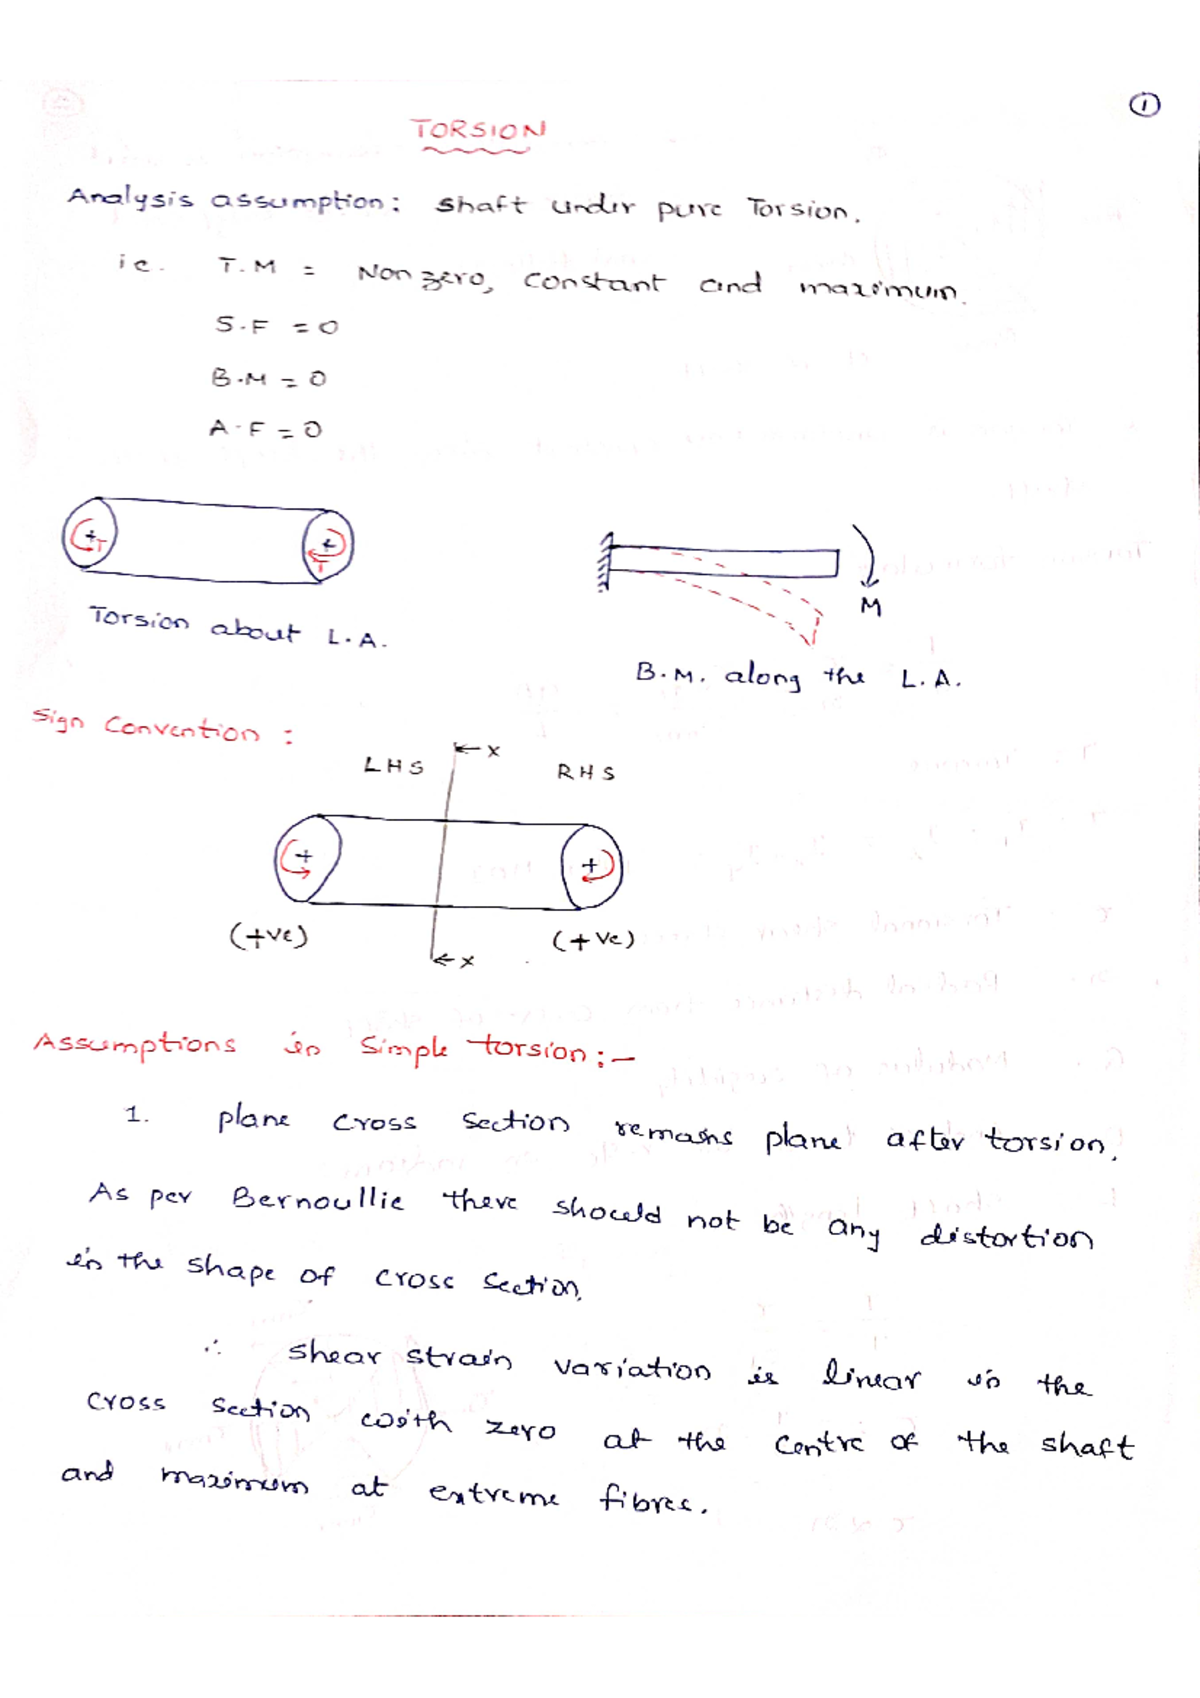 1
TORSION
Analysis assumption: Shaft under pure Torsion.
ie. T.M = Non zero, constant and maximum.
S.F = 0
B.M = 0
A.F = 0
T
T
M
Torsion about L.A.
B.M. along the L.A.
Sign Convention :
LHS
x
RHS
+
+
(+ve)
x
(+ve)
Assumptions in Simple torsion:-
1. plane cross section remains plane after torsion.
As per Bernoullie there should not be any distortion
in the shape of cross section.
∴ shear strain variation is linear in the
cross section with zero at the centre of the shaft
and maximum at extreme fibres.